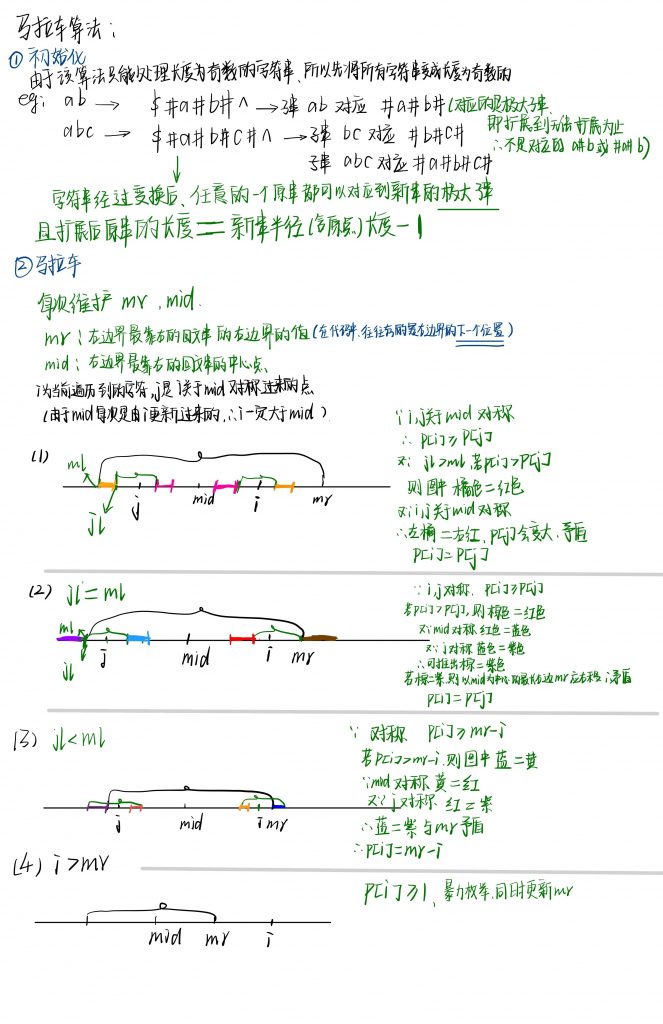 马拉车算法:
① 初始化
由于该算法只能处理长度为奇数的字符串,所以先将所有字符串变成长度为奇数的
eg: ab → $#a#b#^ → 子串 ab 对应 #a#b# (对应的是极大子串
即扩展到无法扩展为止
abc → $#a#b#c#^ → 子串 bc 对应 #b#c#
∴不是对应的 a#b 或 #a#b)
子串 abc 对应 #a#b#c#
字符串经过变换后、任意的一个原串都可以对应到新串的极大子串
且扩展后原串的长度 = 新串半径(含原点)长度-1
② 马拉车
每次维护 mr, mid.
mr: 右边界最靠右的回文串的右边界的值 (在代码中,往往存的是右边界的下一个位置)
mid: 右边界最靠右的回文串的中心点.
i为当前遍历到的字符,j是i关于mid对称过来的点
(由于mid每次是由i更新过来的,∴i一定大于mid)
(1)
ml jl j mid i mr
∵i,j关于mid对称
∴ P[i]≥P[j]
又∵ jl>ml 若P[i]>P[j]
则图中 橘色=红色
又∵i,j关于mid对称
∴左橘=左红, P[j]会变大,矛盾
P[i]=P[j]
(2) jl=ml
ml jl j mid i mr
∵i,j对称, P[i]≥P[j]
若P[i]>P[j],则棕色=红色
又∵mid对称 红色=蓝色
又∵j对称 蓝色=紫色
∴可推出棕色=紫色
若棕=紫,则以mid为中心的最长右边mr应右移,矛盾
P[i]=P[j]
(3) jl<ml
j mid i mr
∵ 对称 P[i]≥mr-i
若P[i]>mr-i,则图中蓝=黄
∵mid对称 黄=红
又∵j对称 红=紫
∴蓝=紫与mr矛盾
∴P[i]=mr-i
(4) i>mr
mid mr i
P[i]≥1, 暴力枚举,同时更新mr